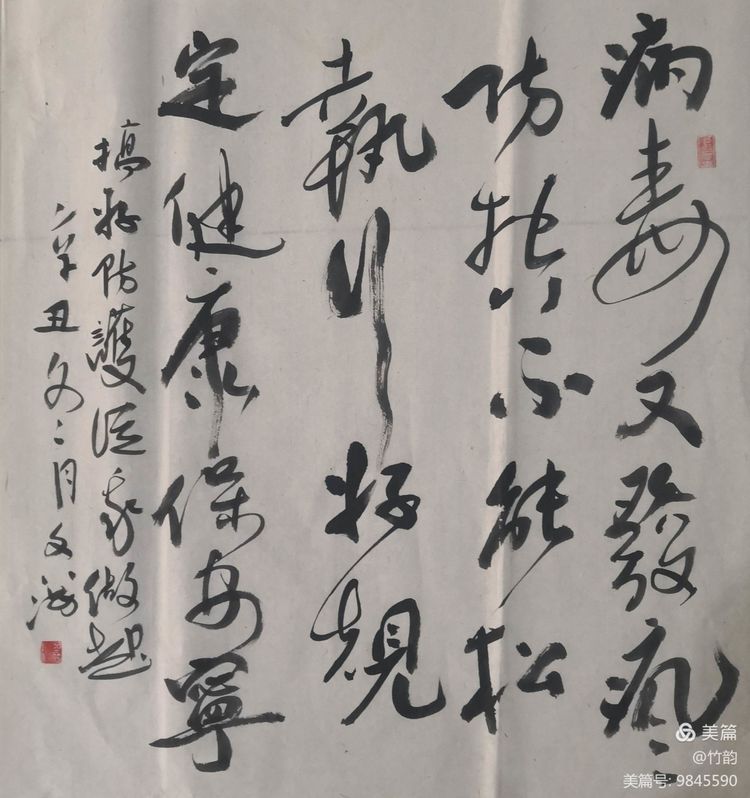 病毒又發疯
防控不能松
執行好規
定健康保安寧
搞好防護從我做起
辛丑冬月文
美篇
@竹韵
美篇号: 9845590